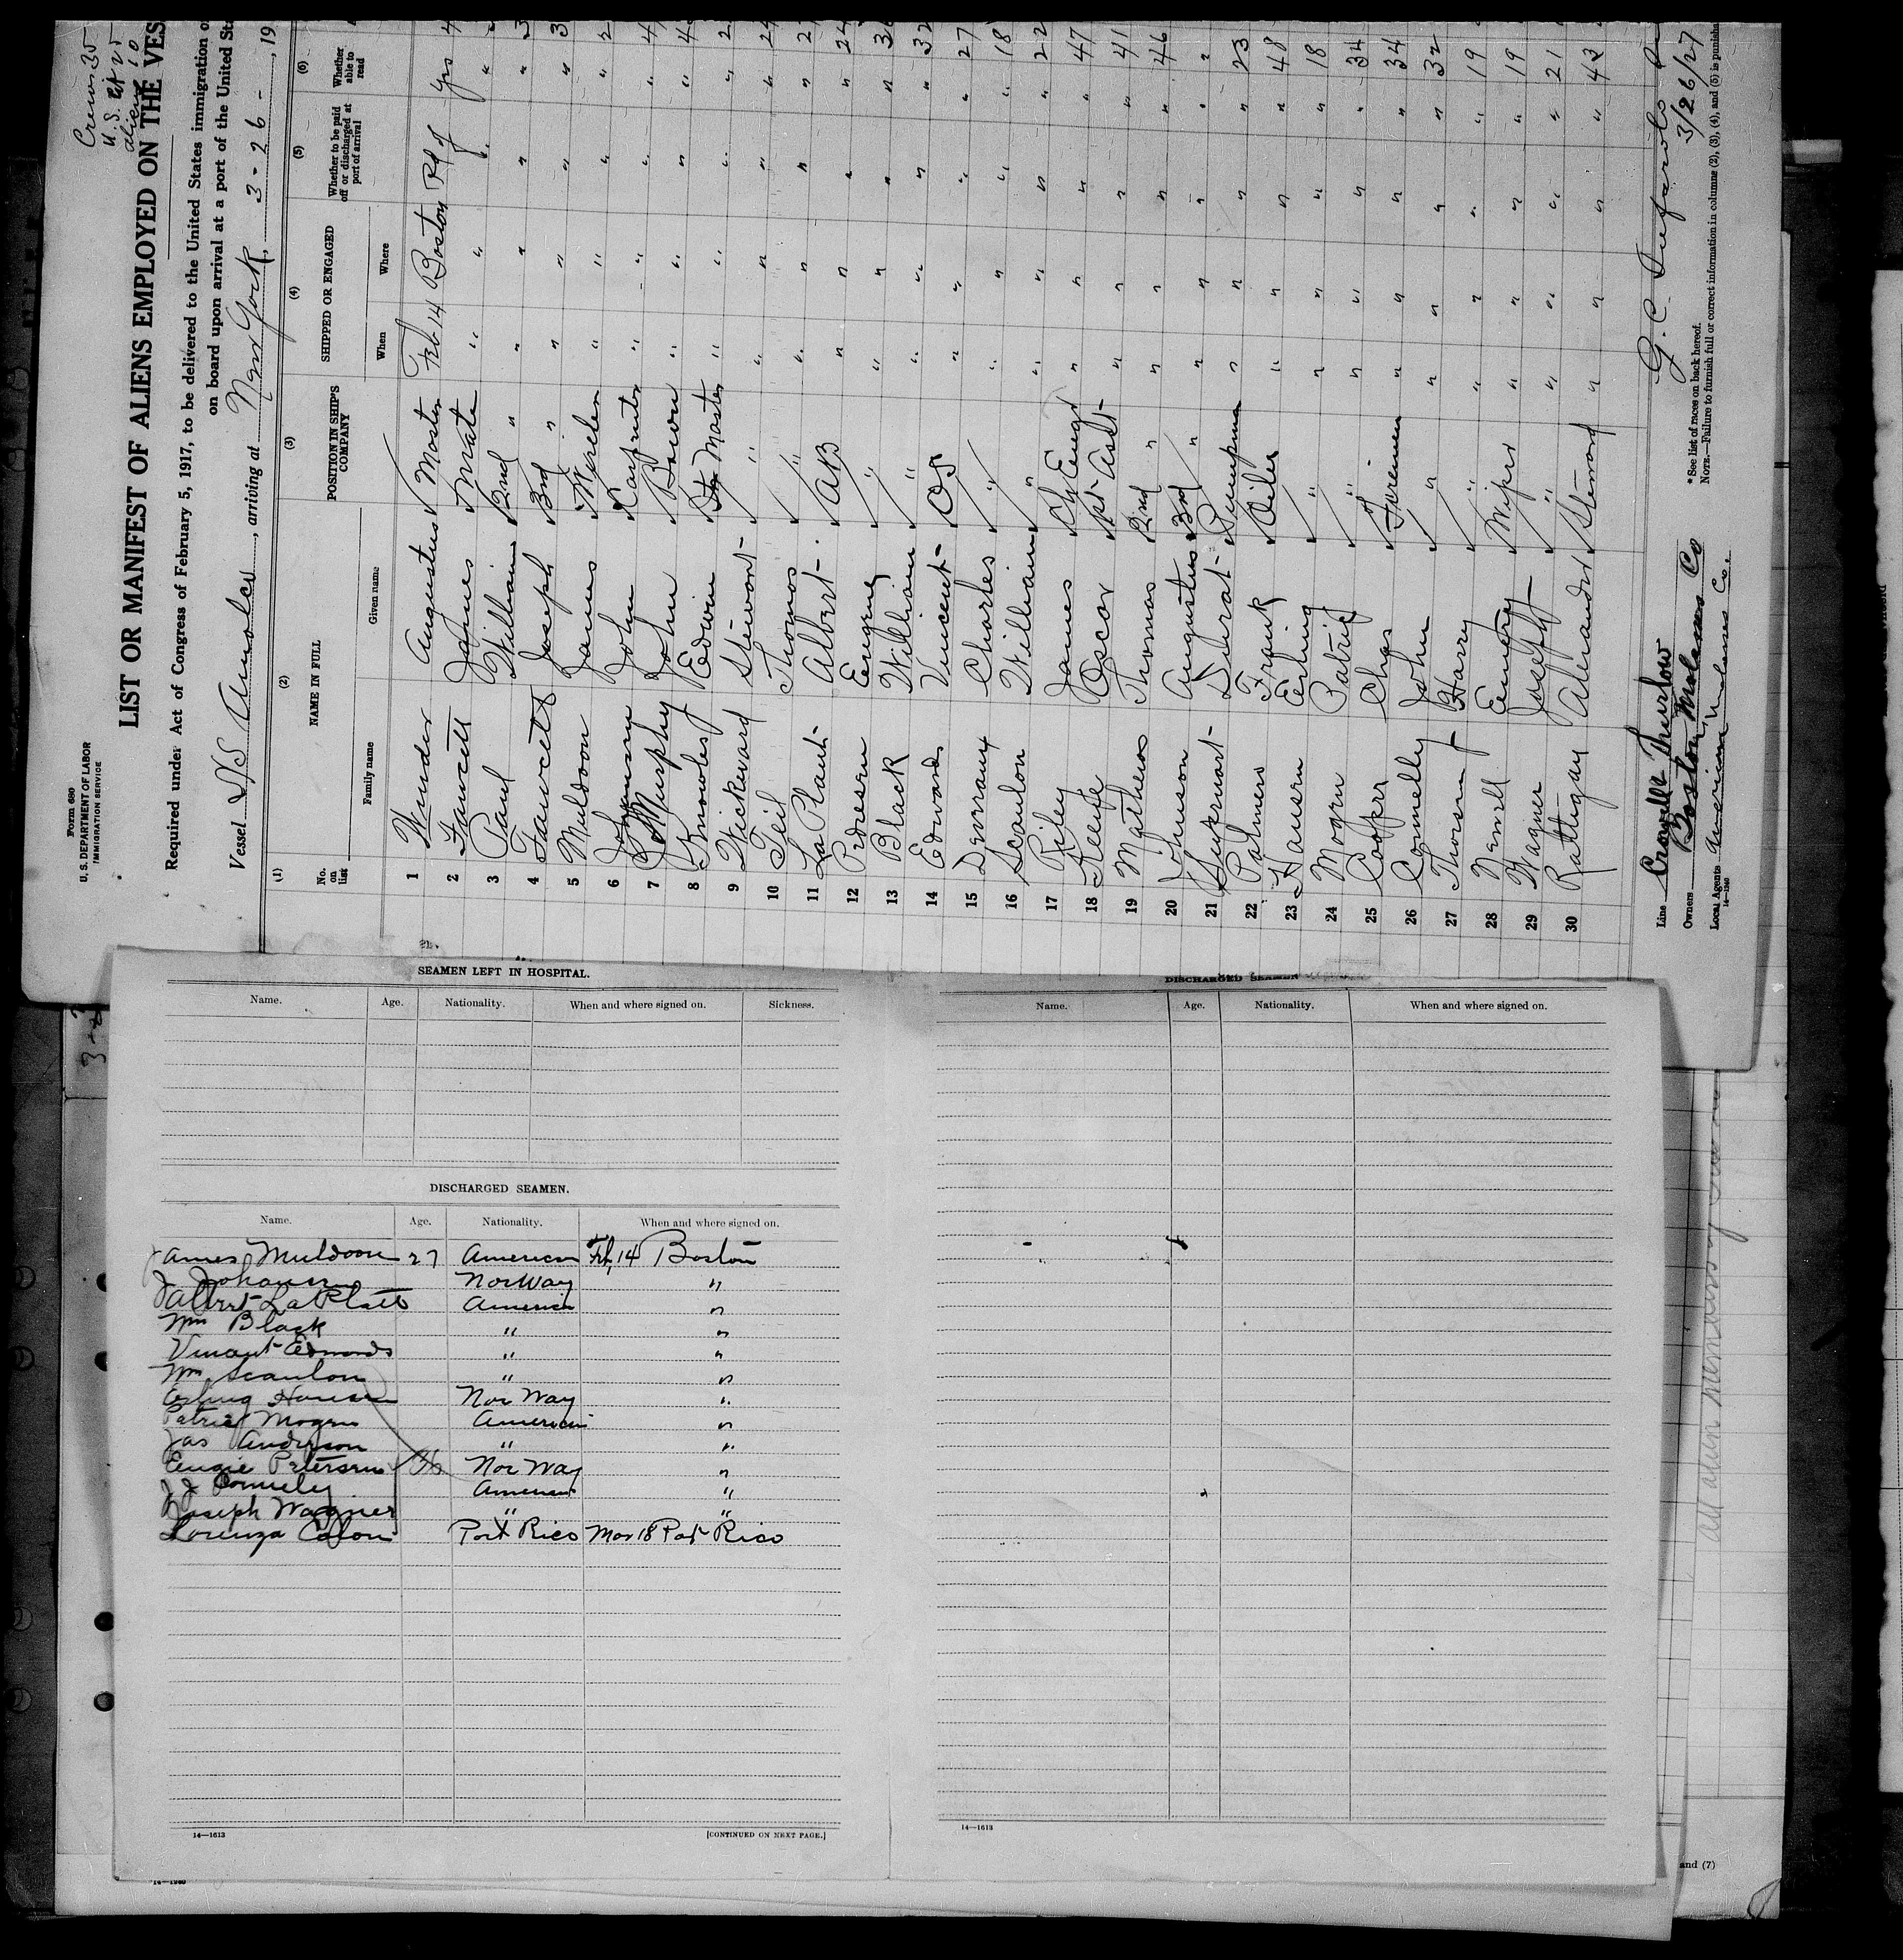 Form 680
U. S. DEPARTMENT OF LABOR
IMMIGRATION SERVICE
Crew 35
U.S. Cit 25
aliens 10
LIST OR MANIFEST OF ALIENS EMPLOYED ON THE VES
Required under Act of Congress of February 5, 1917, to be delivered to the United States immigration o
on board upon arrival at a port of the United St
Vessel S/S Amolco, arriving at New York, 3-26-, 19
(1) (2) (3) (4) (5) (6)
No. on list
NAME IN FULL
Family name Given name
POSITION IN SHIP'S COMPANY
SHIPPED OR ENGAGED
When Where
Whether to be paid off or discharged at port of arrival
Whether able to read
1 Wunder Augustus Master Feb 14 Boston Pd off yes 4
2 Fawcett James Mate " " " " 2
3 Paul William 2nd " " " " " 3
4 Fawcett Joseph 3rd " " " " " 3
5 Muldoon James Wireless " " " " 2
6 Johansen John Carpenter " " " " 4
7 Murphy John Bosun " " " " 4
8 Knowles Edwin Str Master " " " " 2
9 Wickward Stewart " " " " " 24
10 Teil Thomas " " " " " 2
11 LaPlant Albert AB " " " " 24
12 Pedresen Eugene " " " " " 36
13 Black William " " " " " 32
14 Edwards Vincent OS " " " " 27
15 Devraux Charles " " " " " 18
16 Scanlon William " " " " " 22
17 Riley James Ch Eng " " " " 47
18 Kellife Oscar 1st Asst " " " " 41
19 Mathews Thomas 2nd " " " " " 46
20 Johnson Augustus 3rd " " " " "
21 Durat Pumpman " " " " 23
22 Palmer Frank Oiler " " " " 48
23 Hausen Erling " " " " " 18
24 Mogen Patrick " " " " " 34
25 Cooper Chas Firemen " " " " 34
26 Connelly John " " " " " 32
27 Thorsen Harry " " " " " 19
28 Newell Emery Wiper " " " " 19
29 Wagner Joseph " " " " " 21
30 Rattigan Alexander Steward " " " " 43
Line Crowell & Thurlow
Owners Boston Molasses Co
Local Agents American Molasses Co.
14—1240
G. C.
3/26/27
*See list of races on back hereof.
NOTE.—Failure to furnish full or correct information in columns (2), (3), (4), and (5) is punisha
SEAMEN LEFT IN HOSPITAL.
Name. Age. Nationality. When and where signed on. Sickness.
DISCHARGED SEAMEN.
Name. Age. Nationality. When and where signed on.
James Muldoon 27 American Feb, 14 Boston
J Johansen Norway "
Albert LaPlatt American "
Wm Black " "
Vincent Edwards " "
Wm Scanlon " "
Erling Hansen Nor Way "
Patrick Mogen American "
Jas Anderson " "
Eugie Petersen Nor Way "
J J Connely American "
Joseph Wagner " "
Lorenza Colon Port Rico Mar 18 Port Rico
14—1613 [CONTINUED ON NEXT PAGE.]
DISCHARGED SEAMEN
Name. Age. Nationality. When and where signed on.
14—1613
and (7)
14—1240